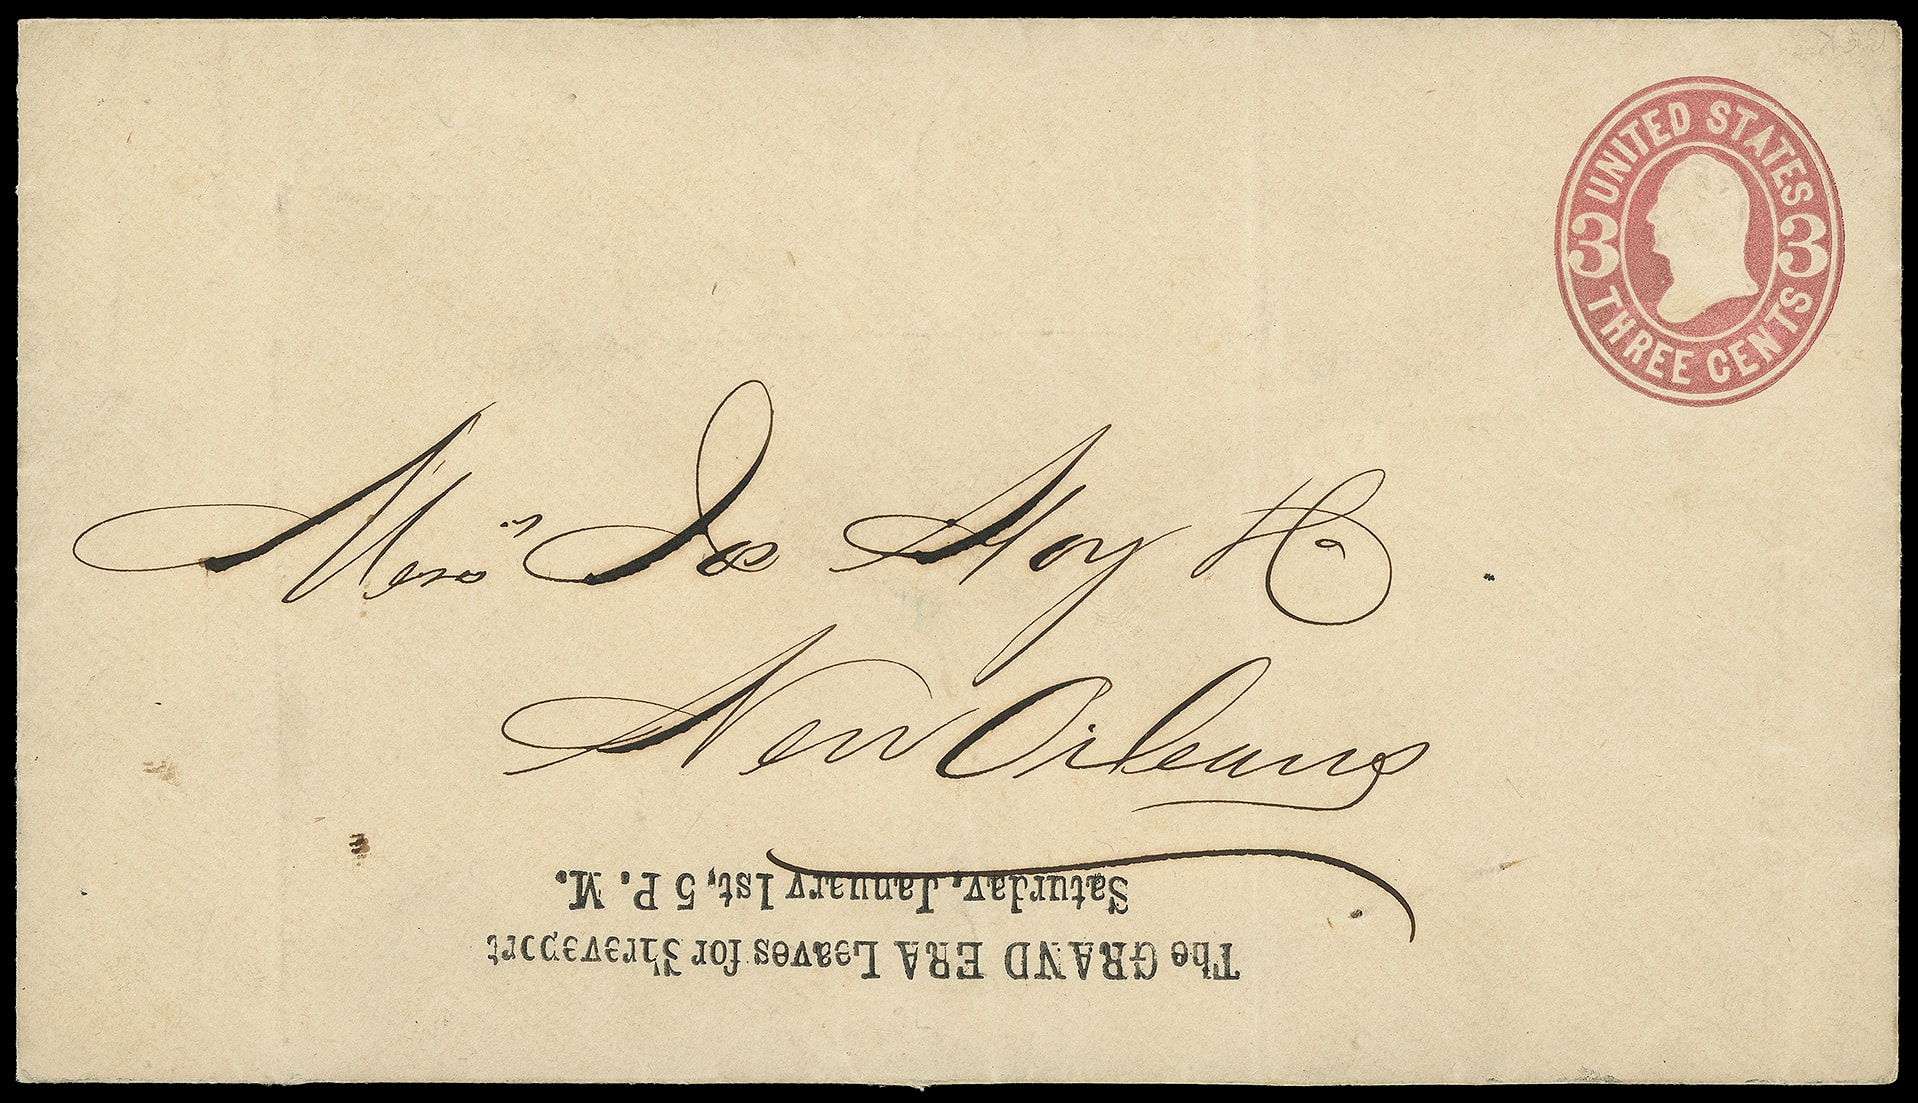 UNITED STATES
3 3
THREE CENTS
Mess Jos Hoy
New Orleans
The GRAND ERA Leaves for Shreveport
Saturday, January 1st, 5 P. M.